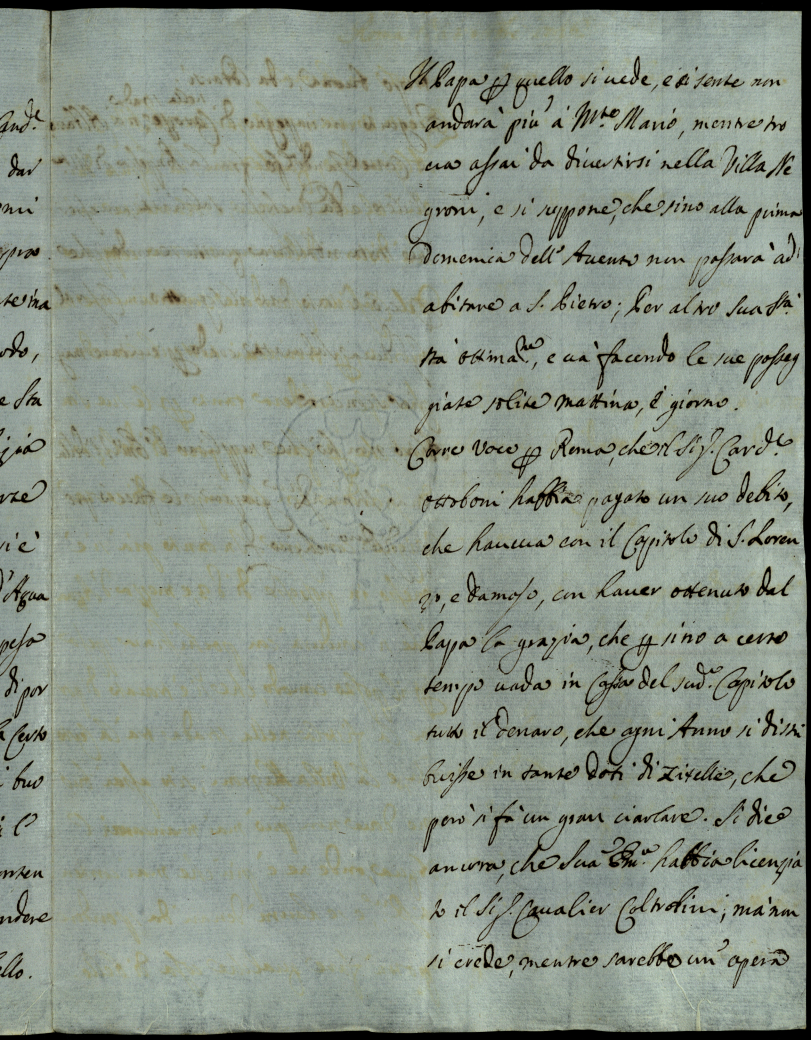 And.e
dar
nni
te ma
odo,
e Sta
izia
rze
vi è
d'Aqua
pesa
di por
Certo
i buo
i l'
nten
ndere
llo.
Il Papa p quello si uede, e si sente non
andarà più à M.te Mario, mentre tro
ua assai da diuertirsi nella Villa Ne
groni, e si suppone, che sino alla prima
Domenica dell'Auuento non passarà ad
abitare a S. Pietro; Per altro Sua S.tà
stà ottimam.te, e uà facendo le sue passeg
giate solite mattina, e giorno.
Corre voce p Roma, che il Sig.r Card.le
Ottoboni habbia pagato un suo debito,
che haueua con il Capitolo di S. Loren
zo, e Damaso, con hauer ottenuto dal
Papa la grazia, che p sino a certo
tempo uada in Cassa del sud.o Capitolo
tutto il denaro, che ogni Anno si distri
buisse in tante doti di Zitelle, che
però si fà un gran ciarlare. Si dice
ancora, che Sua Em.a habbia licenzia
to il Sig.r Caualier Coltrolini; mà non
si crede, mentre sarebbe un'opera